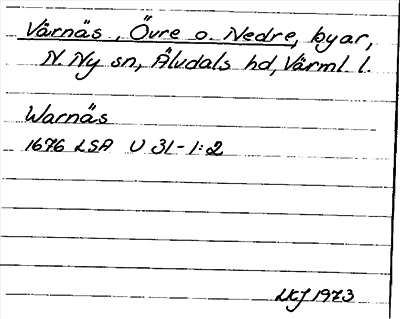 Värnäs, Övre o. Nedre, byar,
N. Ny sn, Älvdals hd, Värml. l.
Warnäs
1676 LSA U 31-1:2
LKJ 1973